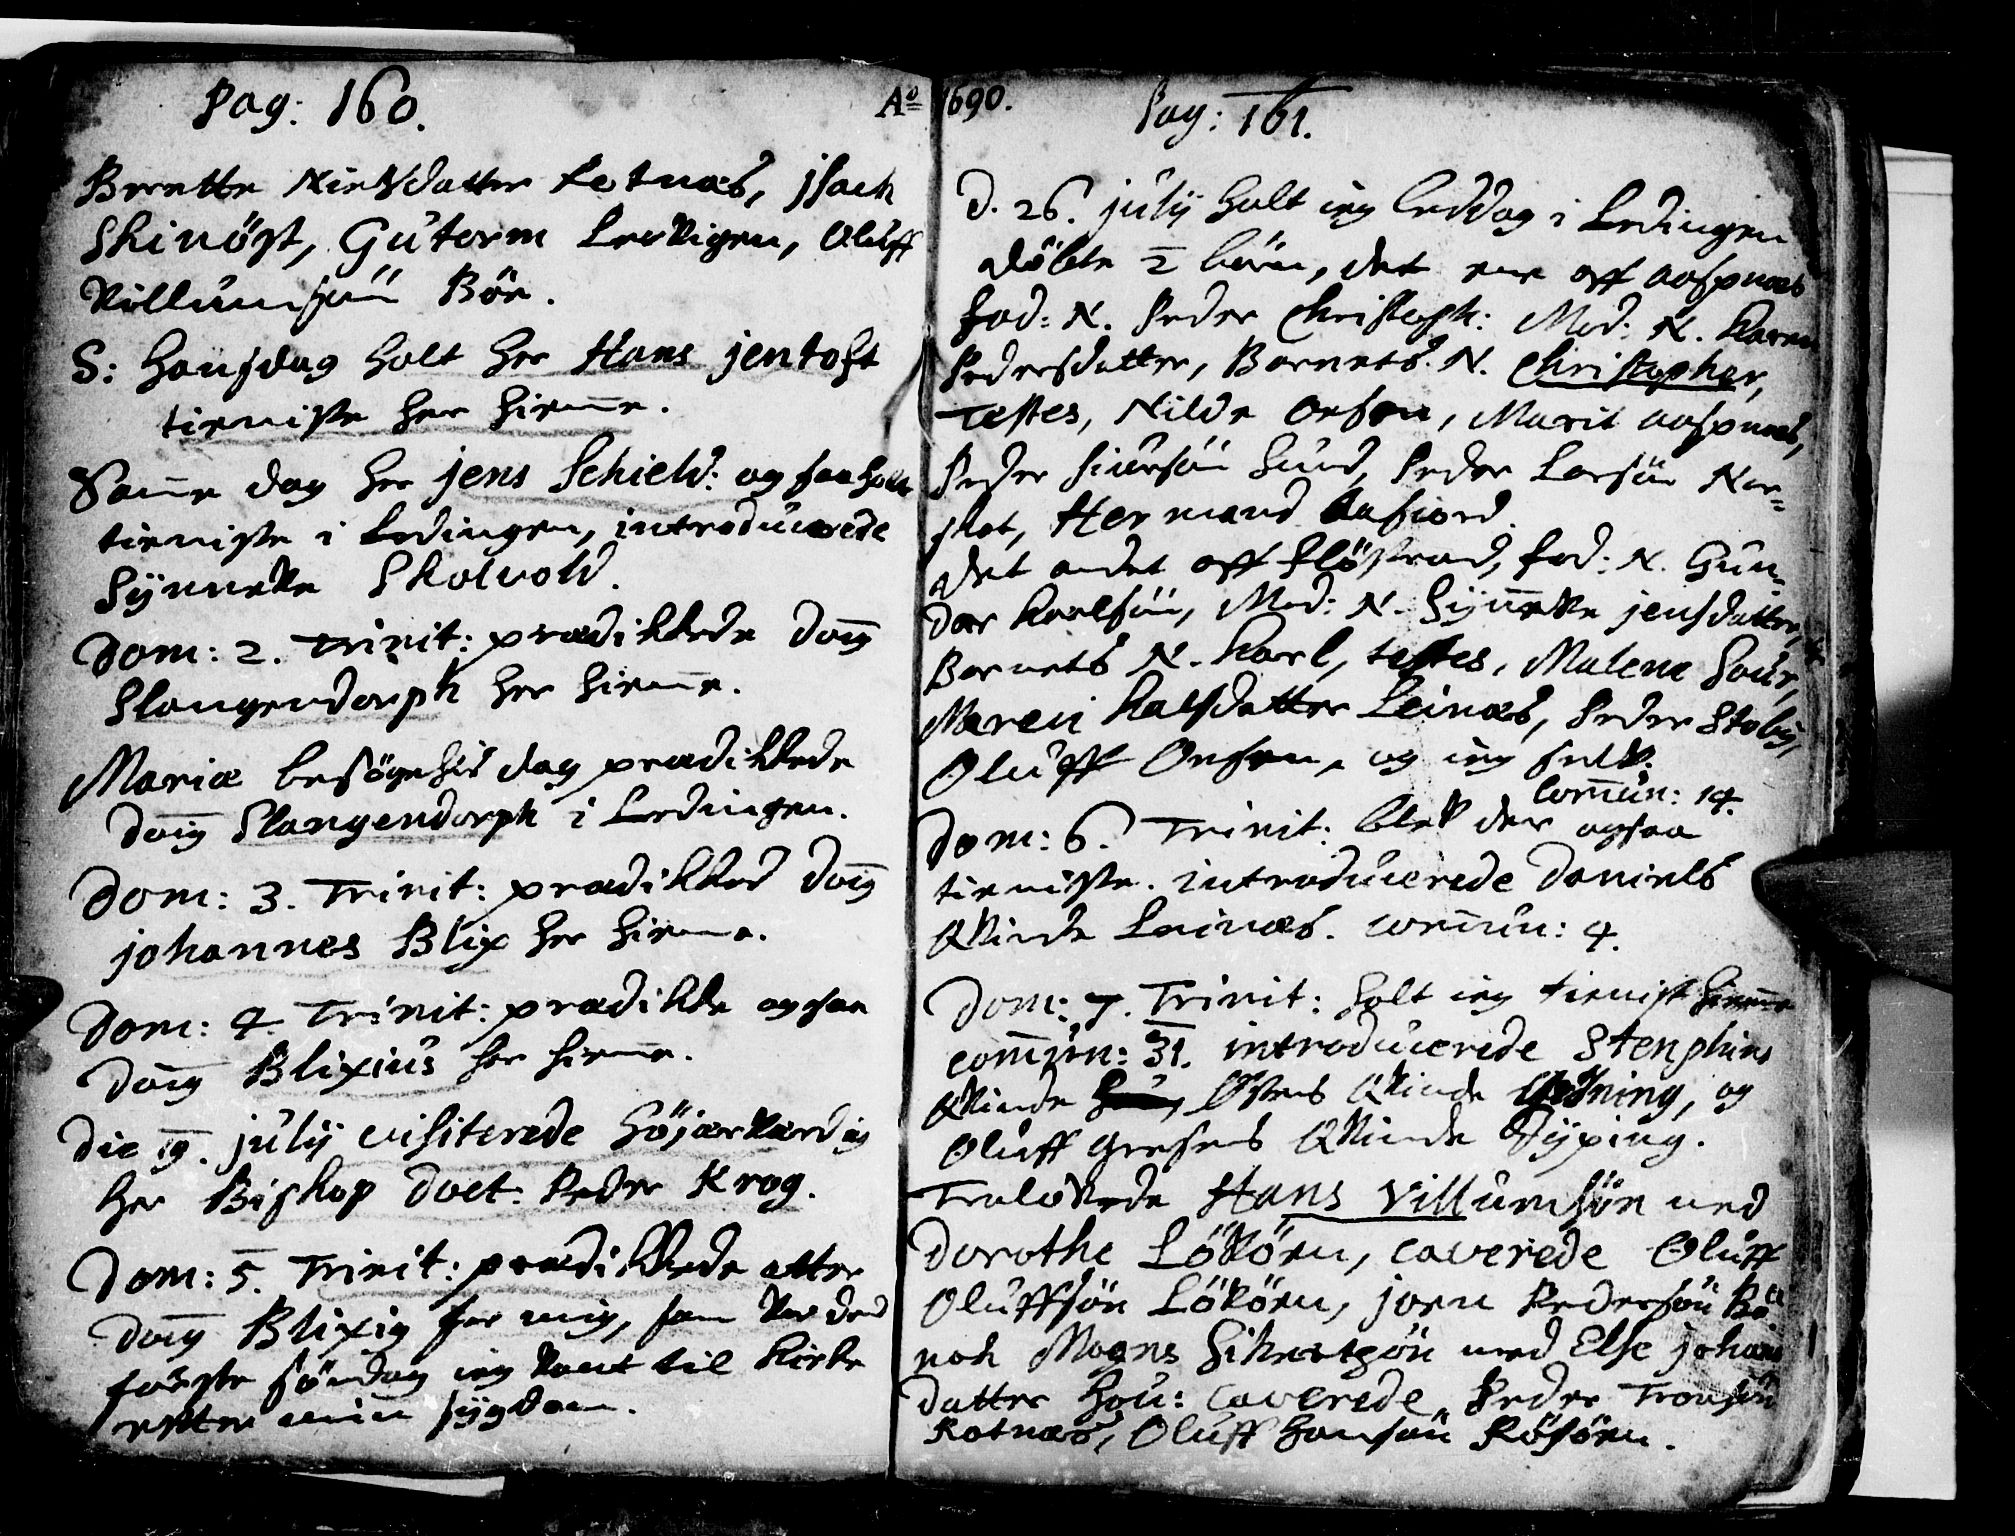 Pag: 160.
Berette Nielsdatter Rotnæs, jsach
Skinöst, Gutorm Levigen, Oluff
Villumsøn Böe.
S: Hansdag holt her Hans jentoft
tieniste her hieme.
Same dag her jens Schield: ogsaa holt
tieniste i Lodingen, introducerede
Synneve Skolvold.
Dom: 2. Trinit: prædikkede Doms
Slangendorph her hieme.
Mariæ besøgelsis dag prædikkede
Doms Slangendorph i Lodingen.
Dom: 3. Trinit: prædikked Doms
johannes Blix her hieme.
Dom: 4. Trinit: prædikke ogsaa
Doms Blixius her hieme.
Die 19. julij visiterede höjærværdig
her Biskop Doct: Peder Krog.
Dom: 5. Trinit: prædikkede atter
Doms Blixig for mig, som var den
første söndag ieg kom til kirke
effter min sygdom.
Ao 1690.
Pag: 161.
D. 26. julij holt ieg beddag i Lodingen
döbte 2 børn, det ene aff aaspnæs
fad: N. Peder Christoph: Mod: N. Karen
Pedersdatter, Barnets N. Christopher,
Testes, Nilde Oefsen, Marit aaspnæs,
Peder siursön Sund, Peder Larsön Nor-
skot, Hermand Kafiord.
det andet aff flöstrand, fad: N. Gun-
dar Karlsøn, Mod: N. Synneve jensdatter,
Barnets N. Karl, testes, Malene Hour,
Maren Halsdatter Leinæs, Peder Stoby,
Oluff Oefsen, og ieg self.
comun: 14.
Dom: 6. Trinit: blef der ogsaa
tieniste. introducerede Daniels
Qvinde Leinæs. comun: 4.
Dom: 7. Trinit: holt ieg tienist hieme
comun: 31. introducerede Stenphins
Qvinde Østens Qvinde, og
Oluff Qvinde Ryping.
Trolovede Hans Villumsön med
Dorothe Lökören, caverede Oluff
Oluffsön Lökören, joen Pedersön Bö.
nok Mogns Sikvertsön med Else johans
datter Hou: caverede, Peder Tronsön
Rotnæs, Oluff Hansön Rösören.